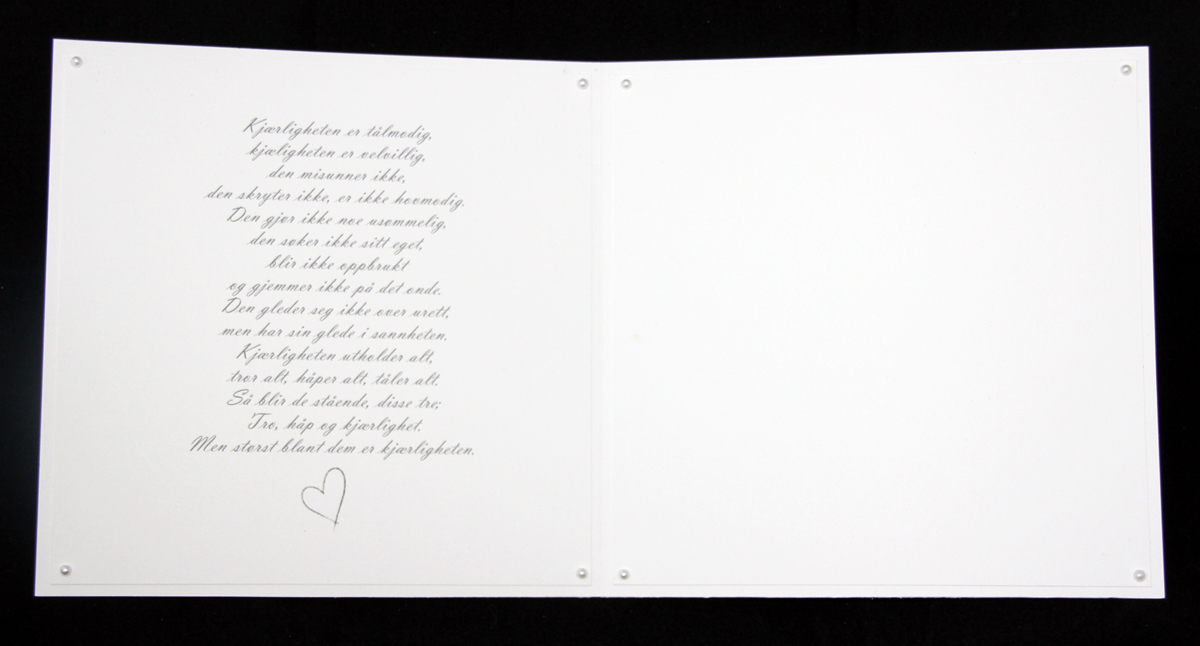 Kjærligheten er tålmodig,
kjæligheten er velvillig,
den misunner ikke,
den skryter ikke, er ikke hovmodig.
Den gjør ikke noe usømmelig,
den søker ikke sitt eget,
blir ikke oppbrukt
og gjemmer ikke på det onde.
Den gleder seg ikke over urett,
men har sin glede i sannheten.
Kjærligheten utholder alt,
tror alt, håper alt, tåler alt.
Så blir de stående, disse tre;
Tro, håp og kjærlighet.
Men størst blant dem er kjærligheten.